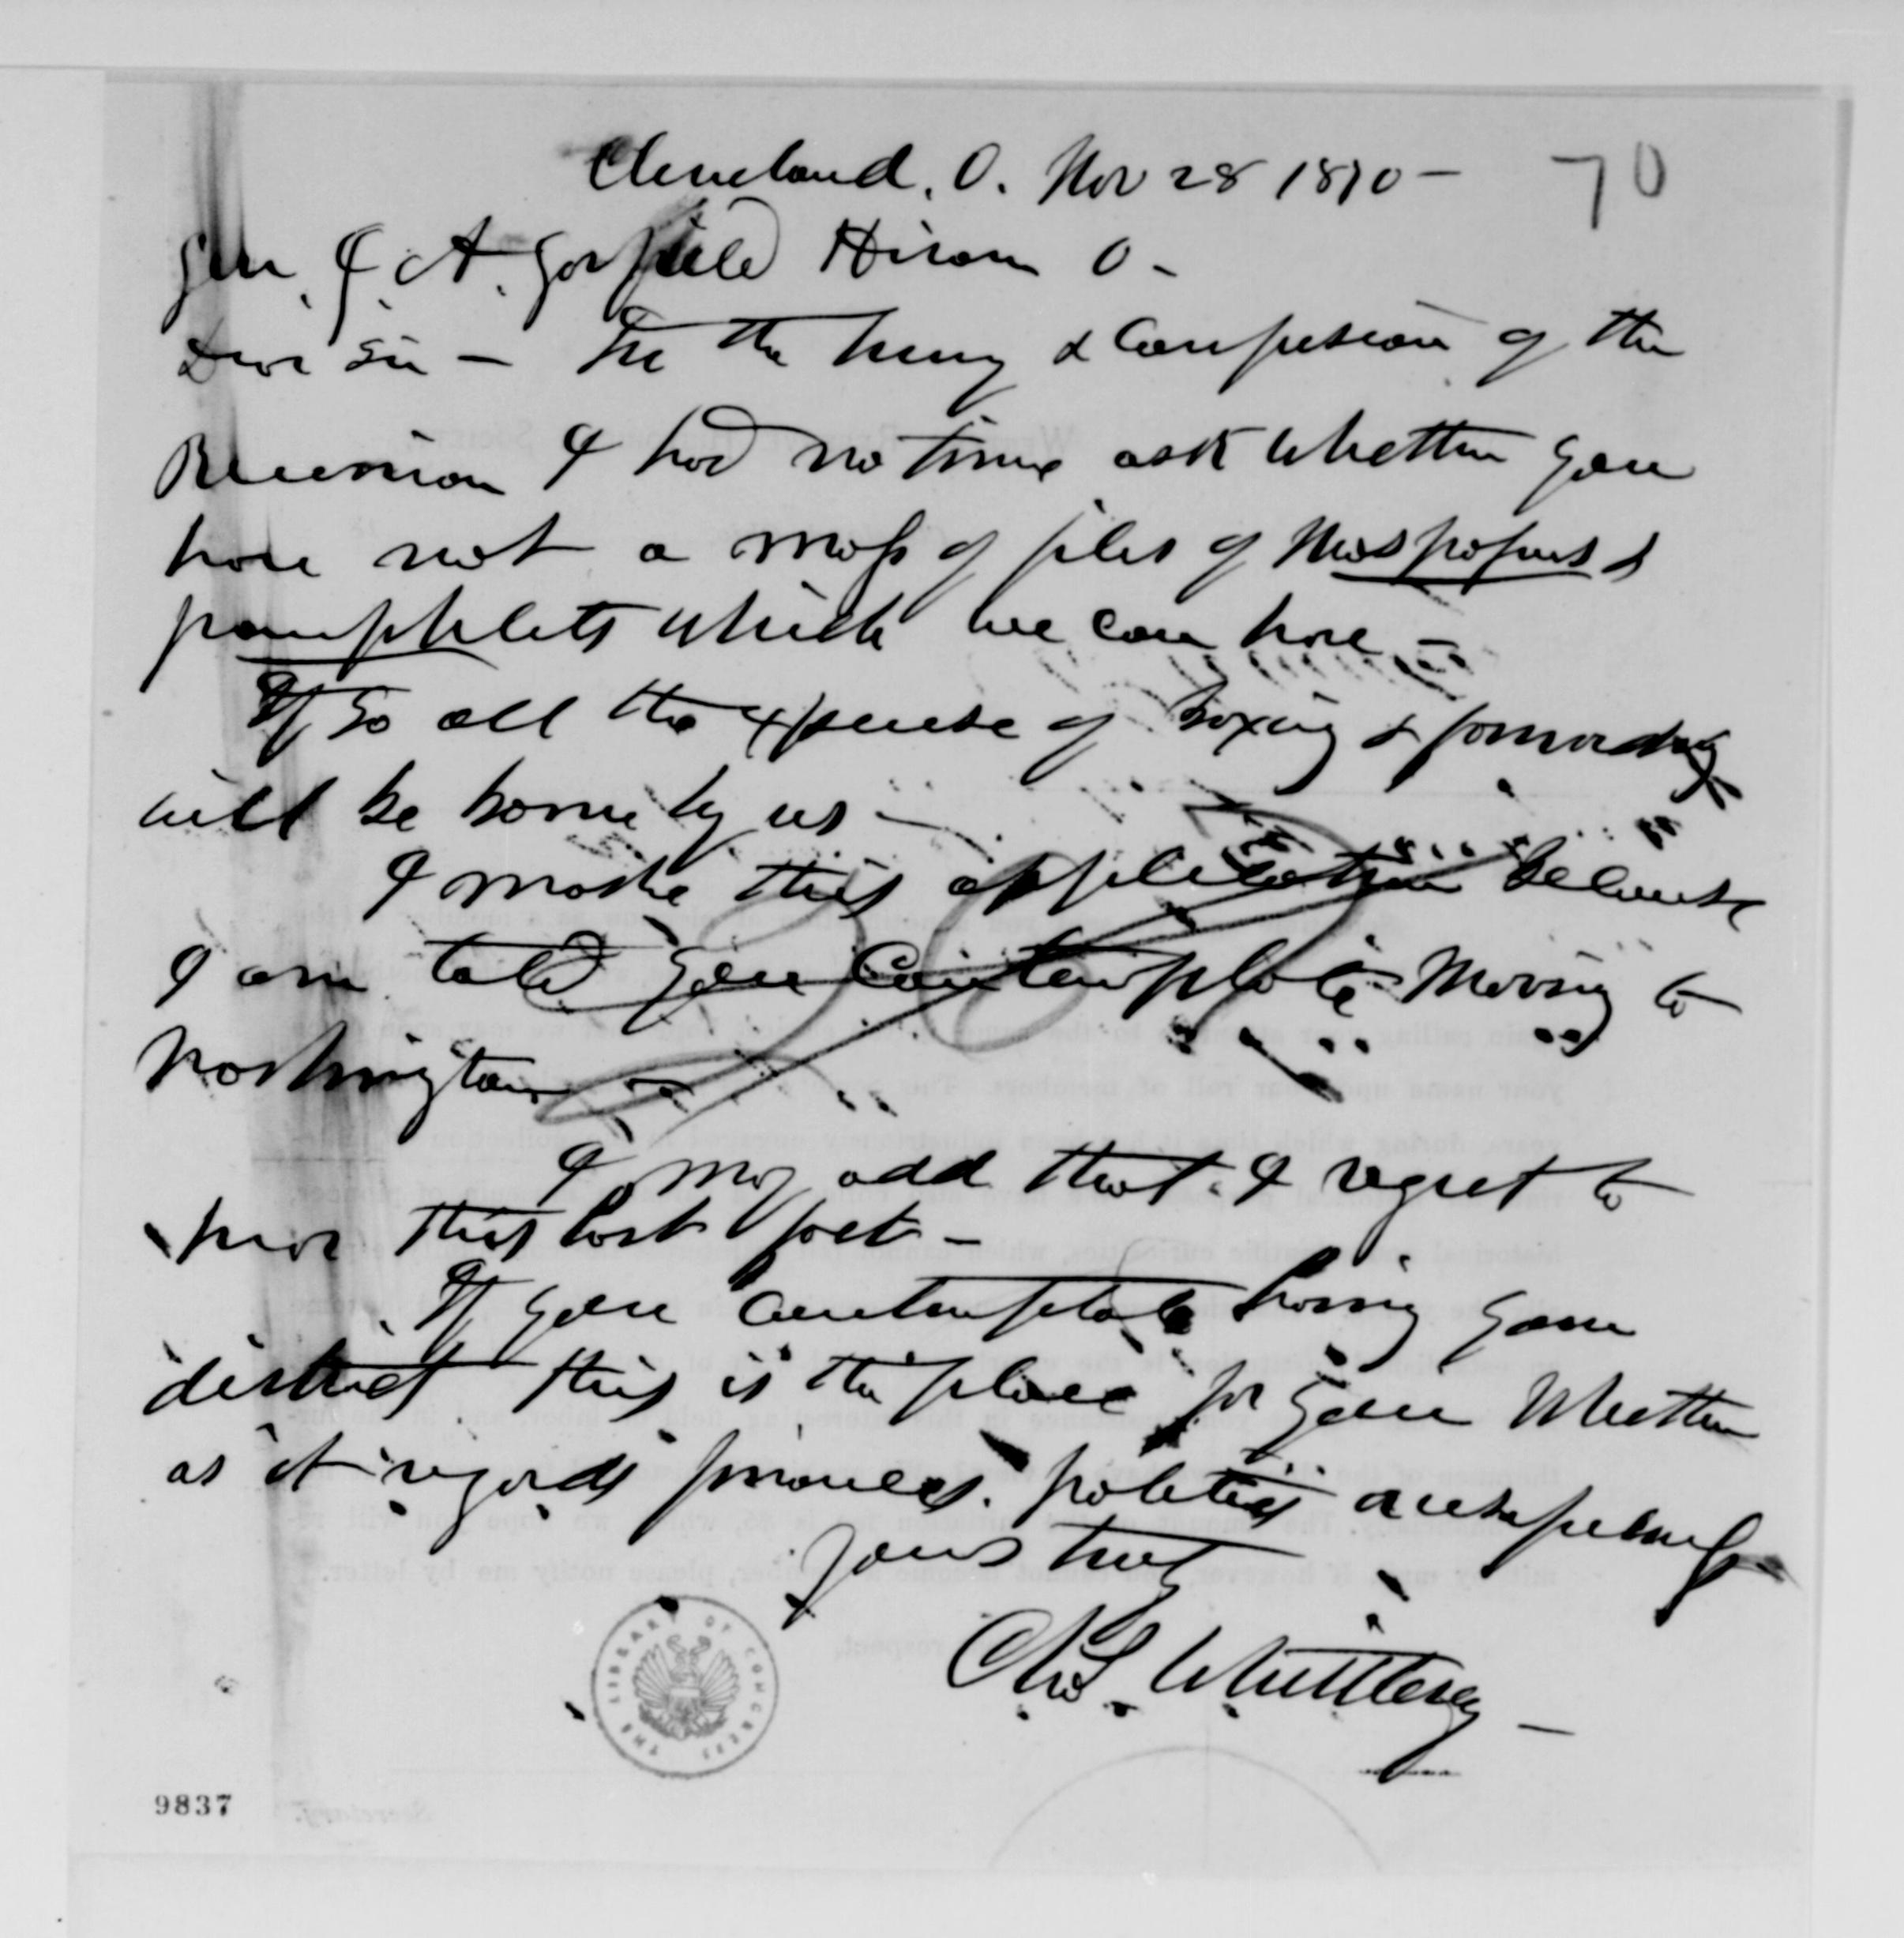 Cleveland, O. Nov 28 1870 - 70
Gen. J. A. Garfield Hiram O -
Dear Sir - In the hurry & confusion of the
Reunion I had no time ask whether you
have not a mass of files of Newspapers &
pamphlets which we can have -
If so all the expense of boxing & forwarding
will be borne by us -
I make this application because
I am told you contemplate moving to
Washington -
I may add that I regret to
hear this last fact -
If you contemplate leaving your
district this is the place for you whether
as it regards finances, politics
Yours truly
Chas Whittlesey -
THE LIBRARY OF CONGRESS
9837